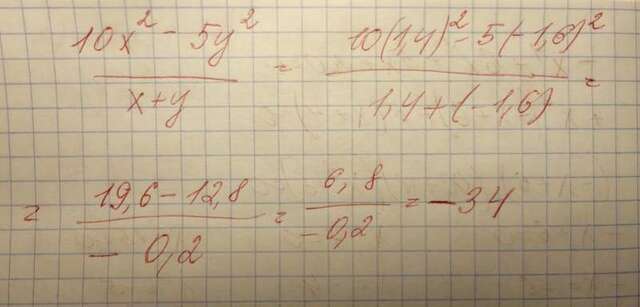 (10x² - 5y²)/(x+y) = (10(1,4)² - 5(-1,6)²)/(1,4+(-1,6)) =
= (19,6-12,8)/(-0,2) = (6,8)/(-0,2) = -34